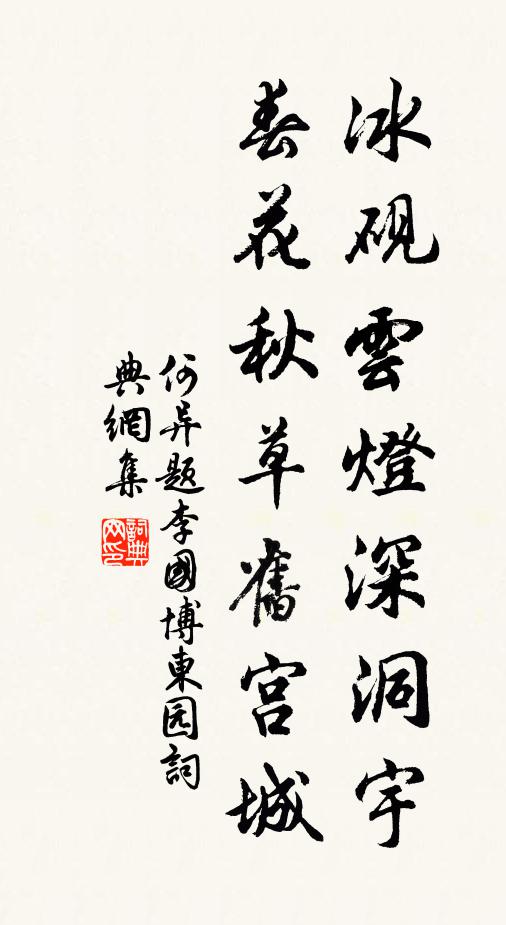 冰硯雲燈深洞宇
春花秋草舊宮城
何异题李國博東园詞
典網集
詞典
网印